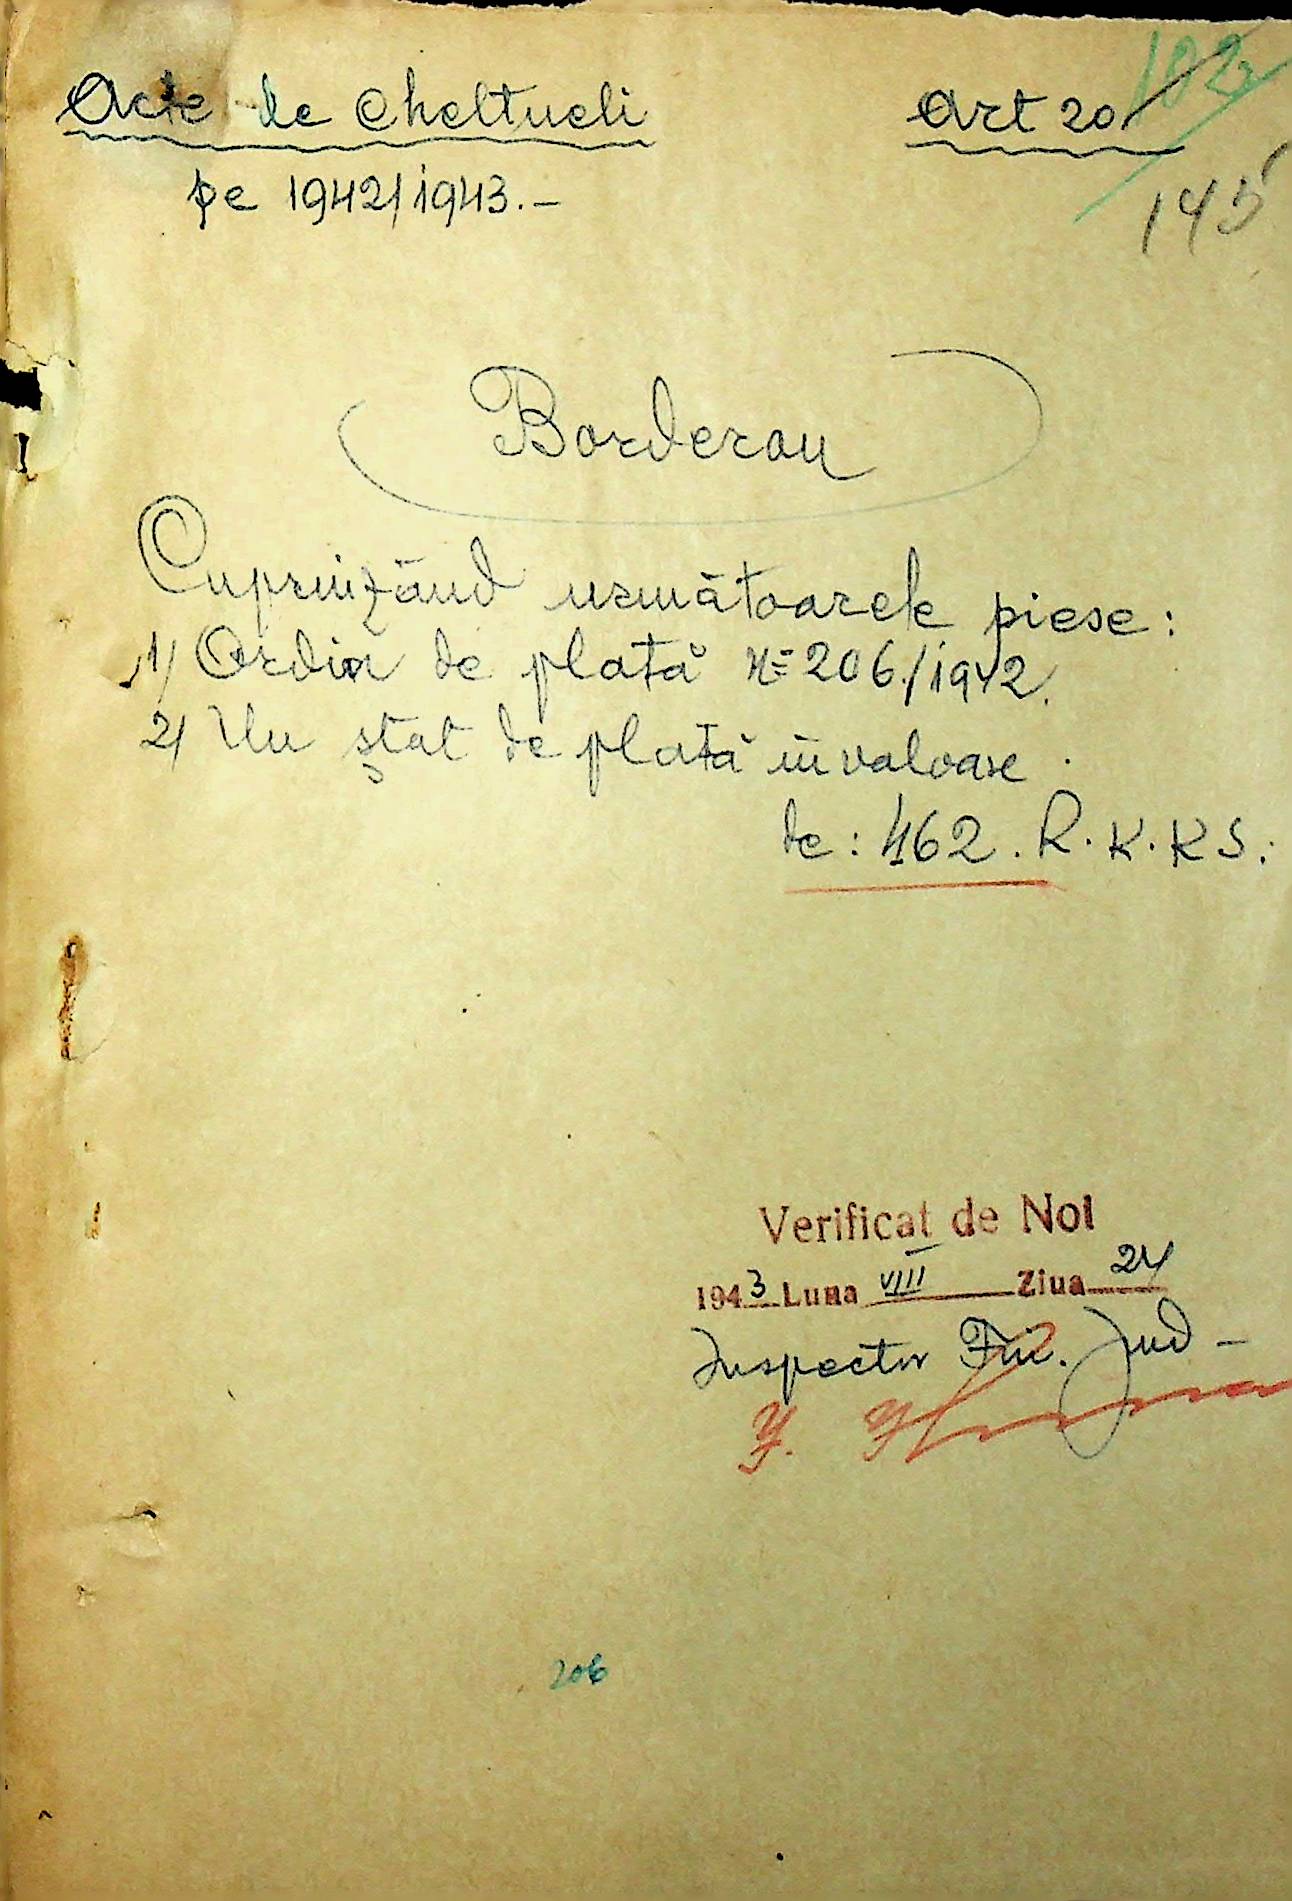 Acte de Cheltueli Art 20 102
pe 1942/1943.- 145
Borderou
Cuprinzând următoarele piese:
1/ Ordin de plată No 206/1942.
2/ Un ștat de plată în valoare
de: 462. R.K.KS.
Verificat de Noi
1943 Luna VIII Ziua 24
Inspector Fin. Jud -
206